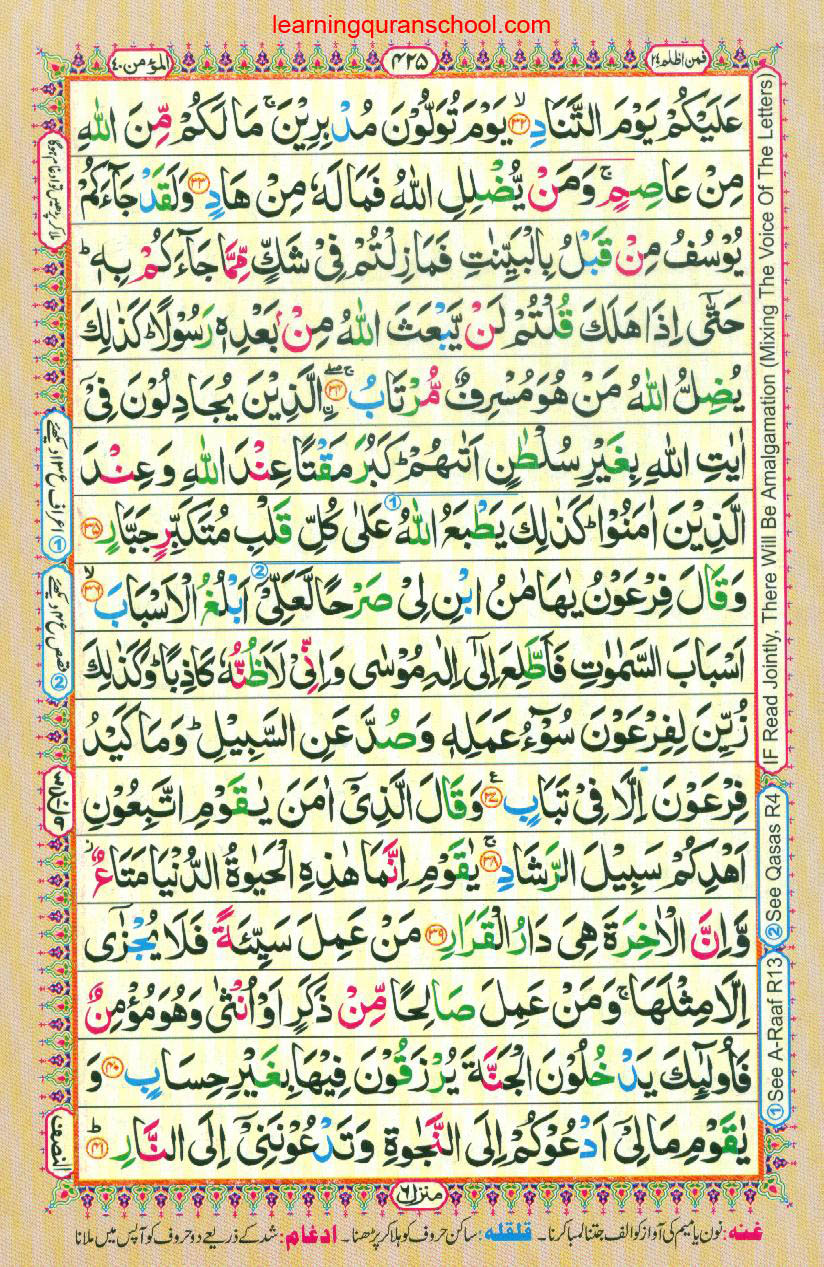 learningquranschool.com
فمن اظلم ٢٤
٤٢٥
المؤمن ٤٠
عَلَيْكُمْ يَوْمَ التَّنَادِ ۙ‏﴿۳۲﴾ يَوْمَ تُوَلُّوْنَ مُدْبِرِيْنَ ۚ مَا لَكُمْ مِّنَ اللّٰهِ
مِنْ عَاصِمٍ ۚ وَمَنْ يُّضْلِلِ اللّٰهُ فَمَا لَهٗ مِنْ هَادٍ ﴿۳۳﴾ وَلَقَدْ جَآءَكُمْ
يُوْسُفُ مِنْ قَبْلُ بِالْبَيِّنٰتِ فَمَا زِلْتُمْ فِيْ شَكٍّ مِّمَّا جَآءَكُمْ بِهٖ ؕ
حَتّٰٓى اِذَا هَلَكَ قُلْتُمْ لَنْ يَّبْعَثَ اللّٰهُ مِنْۢ بَعْدِهٖ رَسُوْلًا ؕ كَذٰلِكَ
يُضِلُّ اللّٰهُ مَنْ هُوَ مُسْرِفٌ مُّرْتَابُ ۚۖ ﴿۳۴﴾ اۨلَّذِيْنَ يُجَادِلُوْنَ فِيْٓ
اٰيٰتِ اللّٰهِ بِغَيْرِ سُلْطٰنٍ اَتٰىهُمْ ؕ كَبُرَ مَقْتًا عِنْدَ اللّٰهِ وَ عِنْدَ
الَّذِيْنَ اٰمَنُوْا ؕ كَذٰلِكَ يَطْبَعُ ① اللّٰهُ عَلٰى كُلِّ قَلْبِ مُتَكَبِّرٍ جَبَّارٍ ﴿۳۵﴾
وَقَالَ فِرْعَوْنُ يٰهَامٰنُ ابْنِ لِيْ صَرْحًا ② لَّعَلِّيْٓ اَبْلُغُ الْاَسْبَابَ ۙ ﴿۳۶﴾
اَسْبَابَ السَّمٰوٰتِ فَاَطَّلِعَ اِلٰٓى اِلٰهِ مُوْسٰى وَاِنِّيْ لَاَظُنُّهٗ كَاذِبًا ؕ وَكَذٰلِكَ
زُيِّنَ لِفِرْعَوْنَ سُوْٓءُ عَمَلِهٖ وَصُدَّ عَنِ السَّبِيْلِ ؕ وَمَا كَيْدُ
فِرْعَوْنَ اِلَّا فِيْ تَبَابٍ ﴿۳۷﴾ ع وَقَالَ الَّذِيْٓ اٰمَنَ يٰقَوْمِ اتَّبِعُوْنِ
اَهْدِكُمْ سَبِيْلَ الرَّشَادِ ۚ ﴿۳۸﴾ يٰقَوْمِ اِنَّمَا هٰذِهِ الْحَيٰوةُ الدُّنْيَا مَتَاعٌ ز
وَّاِنَّ الْاٰخِرَةَ هِيَ دَارُ الْقَرَارِ ﴿۳۹﴾ مَنْ عَمِلَ سَيِّئَةً فَلَا يُجْزٰٓى
اِلَّا مِثْلَهَا ۚ وَمَنْ عَمِلَ صَالِحًا مِّنْ ذَكَرٍ اَوْ اُنْثٰى وَهُوَ مُؤْمِنٌ
فَاُولٰٓئِكَ يَدْخُلُوْنَ الْجَنَّةَ يُرْزَقُوْنَ فِيْهَا بِغَيْرِ حِسَابٍ ﴿۴۰﴾ وَ
يٰقَوْمِ مَا لِيْٓ اَدْعُوْكُمْ اِلَى النَّجٰوةِ وَتَدْعُوْنَنِيْٓ اِلَى النَّارِ ؕ ﴿۴۱﴾
IF Read Jointly, There Will Be Amalgamation (Mixing The Voice Of The Letters)
② See Qasas R4
① See A-Raaf R13
① اعراف ع ١٣ دیکھئے
② قصص ع ٤ دیکھئے
النصف
منزل ٦
غنه: نون یا میم کی آواز کو الف جتنا لمبا کرنا۔ قلقله: ساکن حروف کو ہلا کر پڑھنا۔ ادغام: شد کے ذریعے دو حروف کو آپس میں ملانا